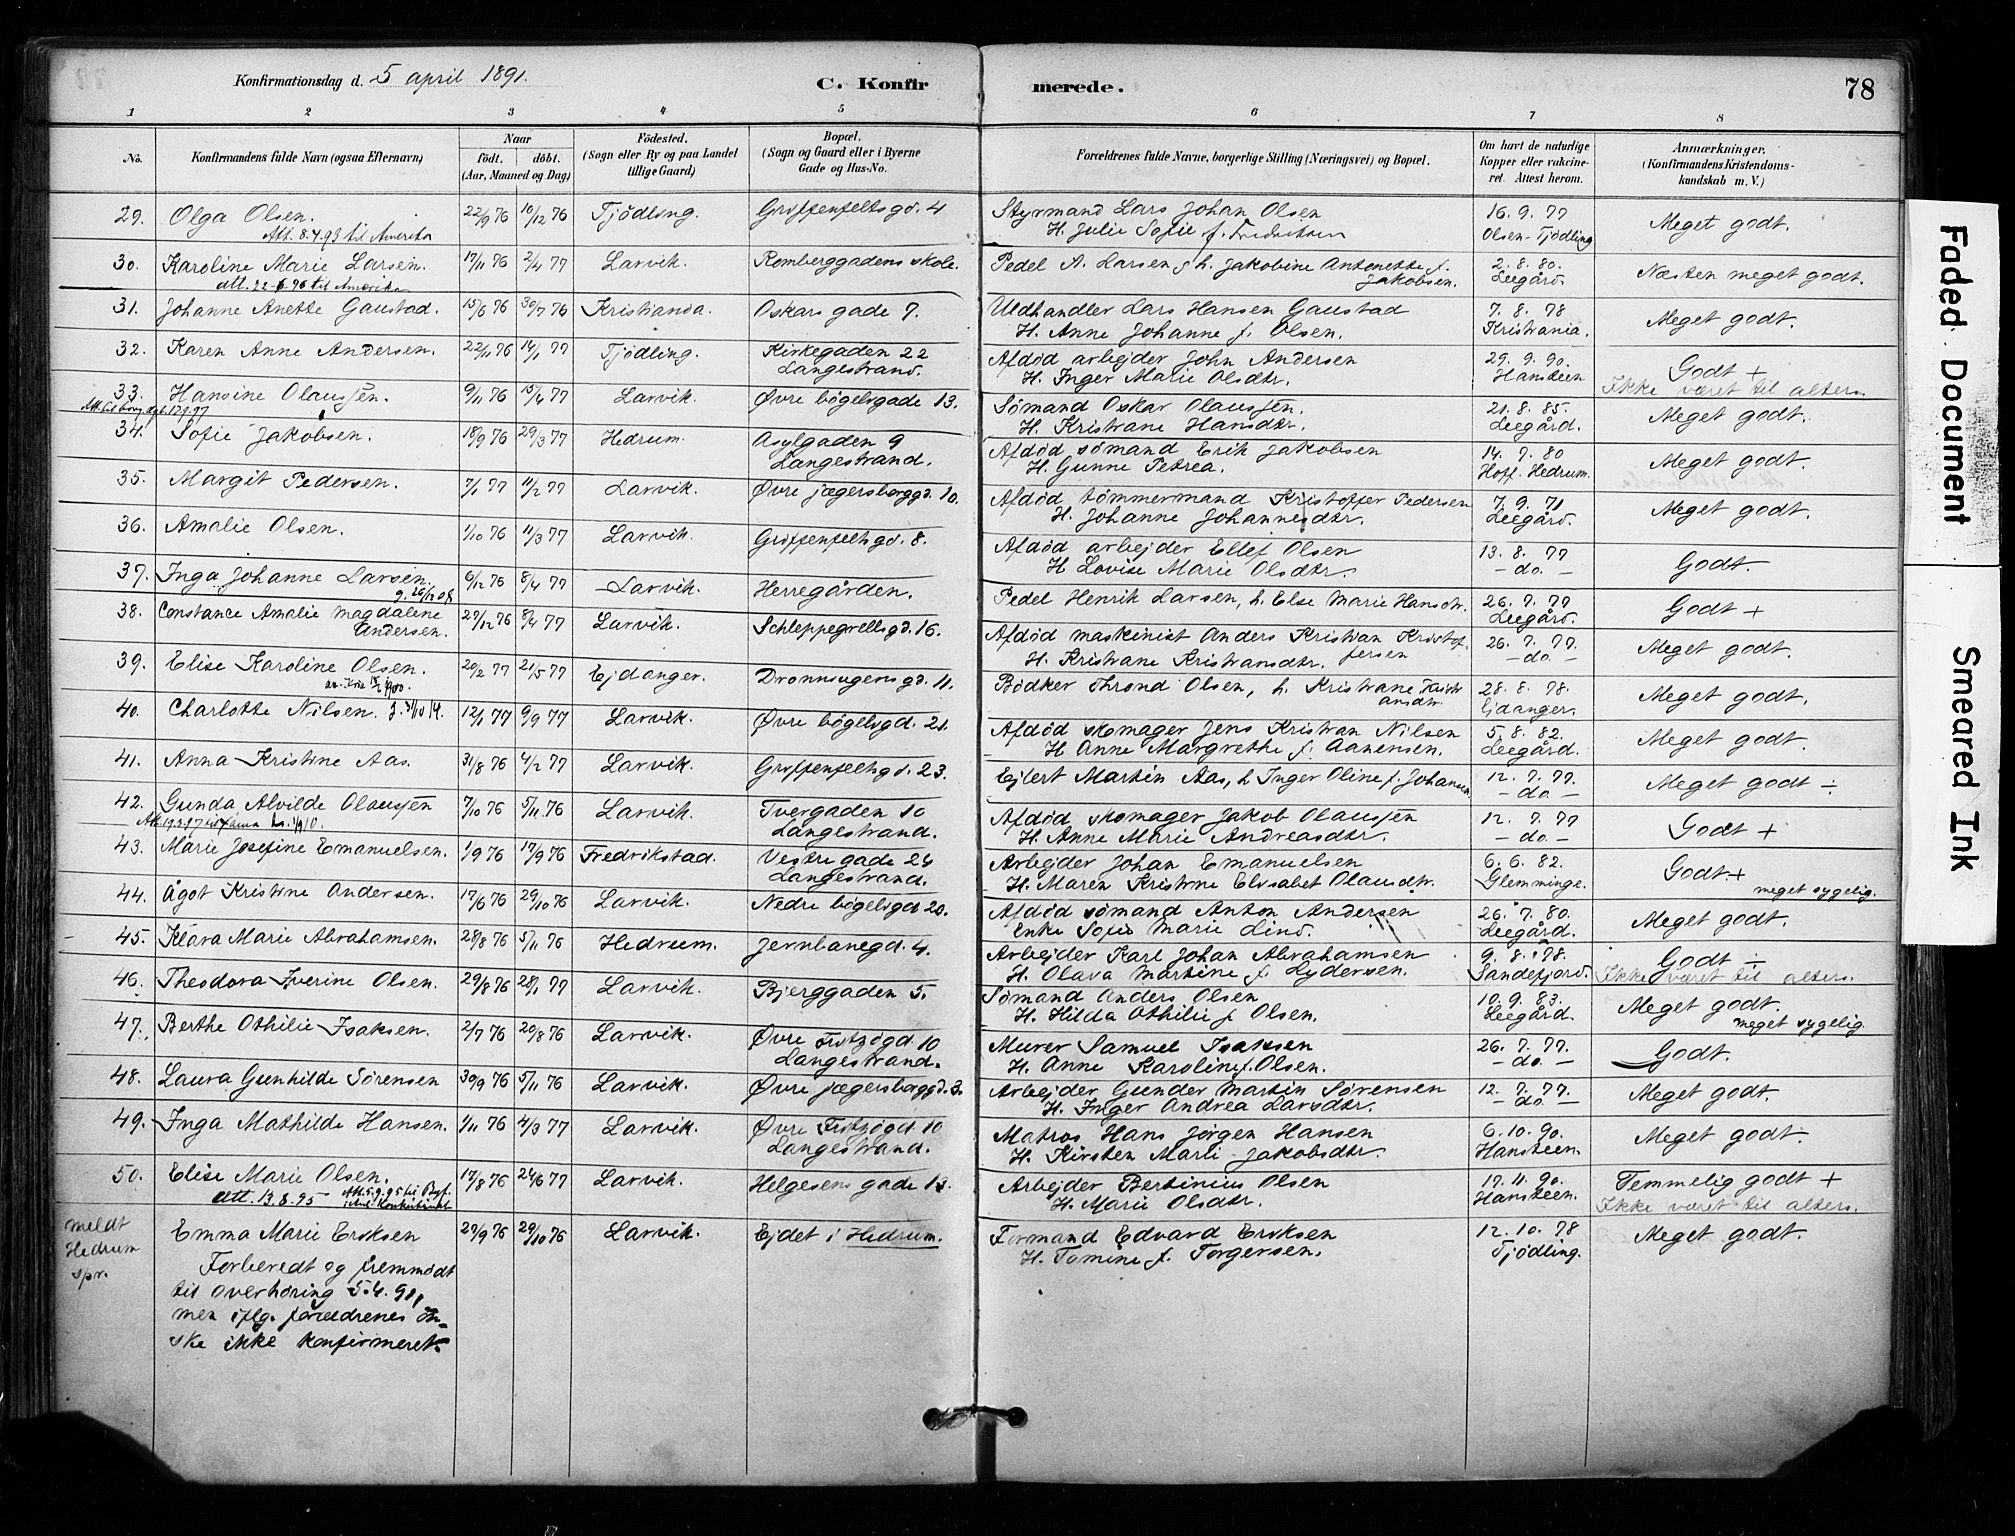 Konfirmationsdag d. 5 april 1891.
C. Konfirmerede.
78
1 2 3 4 5 6 7 8
No.
Konfirmandens fulde Navn (ogsaa Efternavn)
Naar
födt. döbt.
(Aar, Maaned og Dag)
Födested.
(Sogn eller By og paa Landet
tillige Gaard)
Bopæl.
(Sogn og Gaard eller i Byerne
Gade og Hus-No.
Forældrenes fulde Navne, borgerlige Stilling (Næringsvei) og Bopæl.
Om havt de naturlige
Kopper eller vakcine-
ret. Attest herom.
Anmærkninger.
(Konfirmandens Kristendoms-
kundskab m. V.)
29. Olga Olsen. 22/9 76 10/12 76 Tjödling. Griffenfeltsgd. 4 Styrmand Lars Johan Olsen 16. 9. 77 Meget godt.
Att. 8.4.93 til Amerika H. Julie Sofie f. Fredriksen Olsen - Tjödling
30. Karoline Marie Larsen. 17/11 76 2/4 77 Larvik. Romberggadens skole. Pedel A. Larsen, h. Jakobine Antonette f. 2. 8. 80. Næsten meget godt.
att. 22-6-96 til Amerika Jakobsen. Leegård.
31. Johanne Anette Gaustad. 15/6 76 30/7 76 Kristiania. Oskars gade 7. Uldhandler Lars Hansen Gaustad 7. 8. 78 Meget godt.
H. Anne Johanne f. Olsen. Kristiania.
32. Karen Anne Andersen. 22/11 76 14/1 77 Tjödling. Kirkegaden 22 Afdöd arbejder John Andersen 29. 9. 90. Godt +
Langestrand. H. Inger Marie Olsdtr. Hansteen Ikke været til alters.
33. Hansine Olaussen. 9/11 76 15/4 77 Larvik. Øvre bögeligade 13. Sömand Oskar Olaussen. 21. 8. 85. Meget godt.
H. Kristiane Hansdtr. Leegård.
34. Sofie Jakobsen. 18/9 76 29/3 77 Hedrum. Asylgaden 9 Afdöd sömand Erik Jakobsen 14. 7. 80 Meget godt.
Langestrand. H. Gunne Petrea. Hoff. Hedrum.
35. Margit Pedersen. 7/1 77 11/2 77 Larvik. Øvre jægersborggd. 10. Afdöd tömmermand Kristoffer Pedersen 7. 9. 71 Meget godt.
H. Johanne Johannesdtr. Leegård.
36. Amalie Olsen. 1/10 76 11/3 77 Larvik. Griffenfeltsgd. 8. Afdöd arbejder Ellef Olsen 13. 8. 77 Godt.
H. Lovise Marie Olsdtr. - do. -
37. Inga Johanne Larsen. 6/12 76 8/4 77 Larvik. Herregården. Pedel Henrik Larsen, h. Else Marie Hansdtr. 26. 7. 77 Godt +
Leegård.
38. Constance Amalie Magdalene 29/12 76 8/4 77 Larvik. Schleppegrellsgd. 16. Afdöd maskinist Anders Kristian Kristof- 26. 7. 77. Meget godt.
Andersen. H. Kristiane Kristiansdtr. fersen - do -
39. Elise Karoline Olsen. 20/2 77 21/5 77 Ejdanger. Dronningensgd. 11. Bödker Thrond Olsen, h. Kristiane Krist- 28. 8. 78. Meget godt.
iansdtr. Ejdanger.
40. Charlotte Nilsen. 12/1 77 9/9 77 Larvik. Øvre bögeligd. 21. Afdöd skomager Jens Kristian Nilsen 5. 8. 82. Meget godt.
H. Anne Margrethe f. Aanensen. Leegård.
41. Anna Kristine Aas. 31/8 76 4/2 77 Larvik. Griffenfeltsgd. 23. Ejlert Martin Aas, h. Inger Oline f. Johansen 12. 7. 77. Meget godt ÷
- do. -
42. Gunda Alvilde Olaussen 7/10 76 5/11 76 Larvik. Tvergaden 10 Afdöd skomager Jakob Olaussen 12. 7. 77 Godt +
Langestrand. H. Anne Marie Andreasdtr. - do -
43. Marie Josefine Emanuelsen. 1/9 76 17/9 76 Fredrikstad. Vestre gade 24 Arbejder Johan Emanuelsen 6. 6. 82. Godt +
Langestrand. H. Maren Kristine Elisabet Olausdtr. Glemminge. meget sygelig.
44. Ågot Kristine Andersen. 17/6 76 29/10 76 Larvik. Nedre bögeligd 20. Afdöd sömand Anton Andersen 26. 7. 80. Meget godt.
Enke Sofie Marie Lind. Leegård.
45. Klara Marie Abrahamsen. 28/8 76 5/11 76 Hedrum. Jernbanegd. 4. Arbejder Karl Johan Abrahamsen 9. 8. 78. Godt ÷
H. Olava Martine f. Lydersen. Sandefjord. Ikke været til alters.
46. Theodora Iverine Olsen. 29/8 76 28/1 77 Larvik. Bjerggaden 5. Sömand Anders Olsen 10. 9. 83. Meget godt.
H. Hilda Othilie f. Olsen. Leegård. meget sygelig
47. Berthe Othilie Isaksen. 2/7 76 20/8 76 Larvik. Øvre Fritzögd. 10 Murer Samuel Isaksen 26. 7. 77. Godt.
Langestrand. H. Anne Karoline f. Olsen. - do -
48. Laura Gunhilde Sörensen 30/9 76 5/11 76 Larvik. Øvre jægersborggd. 3. Arbejder Gunder Martin Sörensen 12. 7. 77. Meget godt.
H. Inger Andrea Larsdtr. - do. -
49. Inga Mathilde Hansen. 1/11 76 4/3 77 Larvik. Øvre Fritzögd. 10 Matros Hans Jörgen Hansen 6. 10. 90. Meget godt.
Langestrand. H. Kirsten Marli Jakobsdtr. Hansteen.
50. Elise Marie Olsen. 17/8 76 24/6 77 Larvik. Helgesens gade 13. Arbejder Bertinius Olsen 17. 11. 90. Temmelig godt +
att. 13.8.95 H. Marie Olsdtr. Hansteen. Ikke været til alters.
meldt Emma Marie Eriksen 29/9 76 29/10 76 Larvik. Ejdet i Hedrum. Formand Edvard Eriksen 12. 10. 78 Meget godt.
Hedrum H. Tomine f. Torgersen. Tjödling.
spr. Forberedt og fremmödt
til overhöring 5.4.91,
men iflg. forældrenes ön-
ske ikke konfirmeret.
Faded Document
Smeared Ink